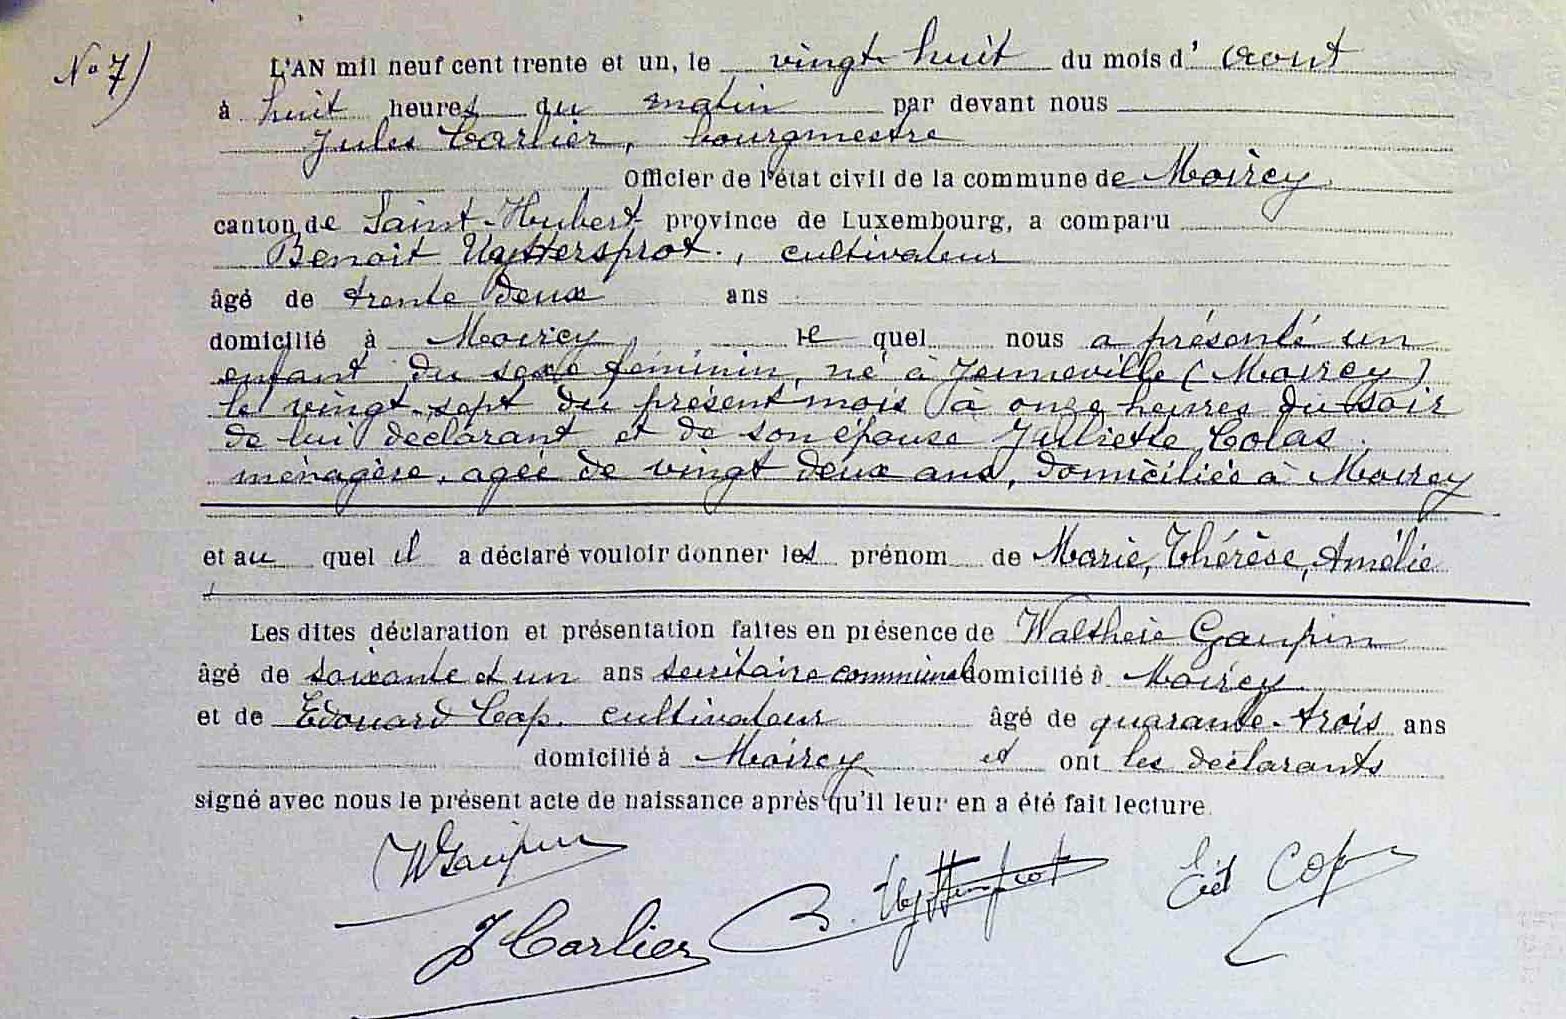 N° 7)
L'AN mil neuf cent trente et un, le vingt-huit du mois d'août
à huit heures du matin par devant nous
Jules Carlier, bourgmestre
Officier de l'état civil de la commune de Moircy
canton de Saint-Hubert province de Luxembourg, a comparu
Benoit Uyttersprot, cultivateur
âgé de trente deux ans
domicilié à Moircy, le quel nous a présenté un
enfant du sexe féminin, né à Jenneville (Moircy)
le vingt-sept du présent mois à onze heures du soir
de lui déclarant et de son épouse Julliette Colas.
ménagère, agée de vingt deux ans, domiciliée à Moircy
et au quel il a déclaré vouloir donner les prénom de Marie, Thérèse, Amélie
Les dites déclaration et présentation faites en présence de Walthère Gaupin
âgé de soixante et un ans secrétaire communal domicilié à Moircy
et de Edouard Cop. cultivateur âgé de quarante-trois ans
domicilié à Moircy et ont les déclarants
signé avec nous le présent acte de naissance après qu'il leur en a été fait lecture.
WGaupin
J Carlier B. Uyttersprot Ed Cop